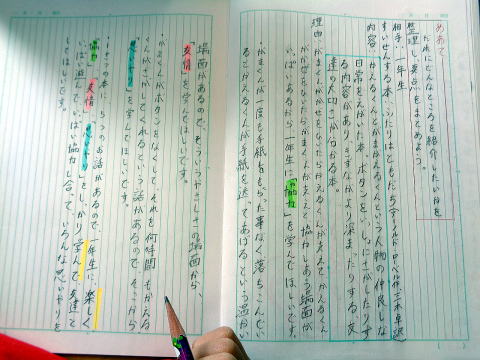 めあて
だれにどんなところを紹介したいかを
整理し、要点をまとめよう。
相手…一年生
すいせんする本…ふたりはともだち(アーノルド・ローベル作、三木卓訳)
内容…かえるくんとがまがえるくんという人物の仲良しな
日常をえがいた本。ボタンをいっしょにさがしたりす
る内容があり、きずながより深まったりする、友
達の大切さが分かる本。
理由…がまくんがかぜをひいたらかえるくんが支えてかえるくん
がかぜをひいたらがまくんが支えと協力しあう場面が
いっぱいあるから一年生に「協力」を学んでほしいです。
・がまくんが一度も手紙をもらった事なく落ちこんでい
るとかえるくんが手紙を送ってあげるという温かい
場面があるので、そういうやさしさの場面から、
「友情」を学んでほしいです。
・がまくんがボタンをなくして、それを何時間もかえる
くんがさがしてくれるという話があるので、そこから
「思いやり」を学んでほしいです。
・1さつの本に、5つのお話があるので、一年生に、楽しく、
「協力」「友情」「思いやり」をしっかり学んで、友達と
いっぱい遊んで、いっぱい協力し合って、いろんな思いやりを
してほしいです。